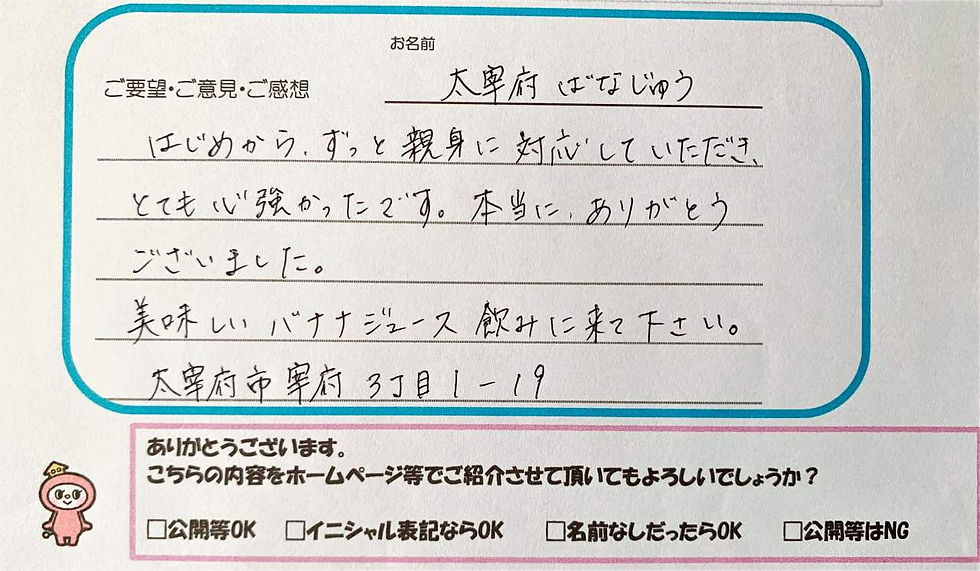 お名前
ご要望・ご意見・ご感想
太宰府 ばなじゅう
はじめから、ずっと親身に対応していただき、
とても心強かったです。本当に、ありがとう
ございました。
美味しいバナナジュース飲みに来て下さい。
太宰府市宰府3丁目1-19
ありがとうございます。
こちらの内容をホームページ等でご紹介させて頂いてもよろしいでしょうか？
□公開等OK □イニシャル表記ならOK □名前なしだったらOK □公開等はNG